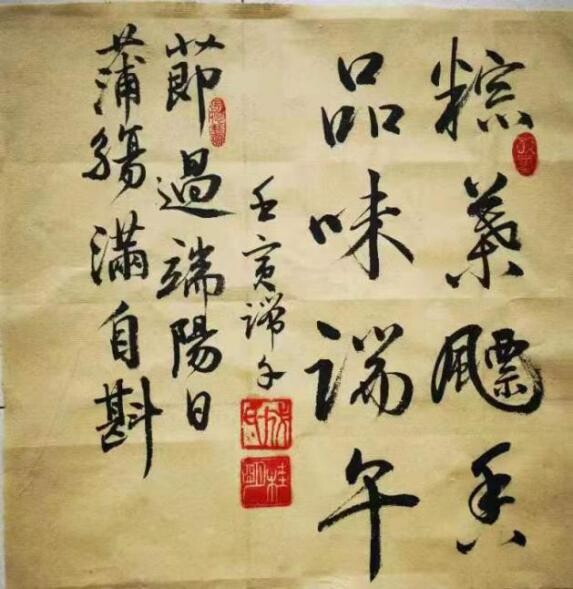 粽葉飄香
品味端午
壬寅端午
節過端陽日
蒲觴滿自斟